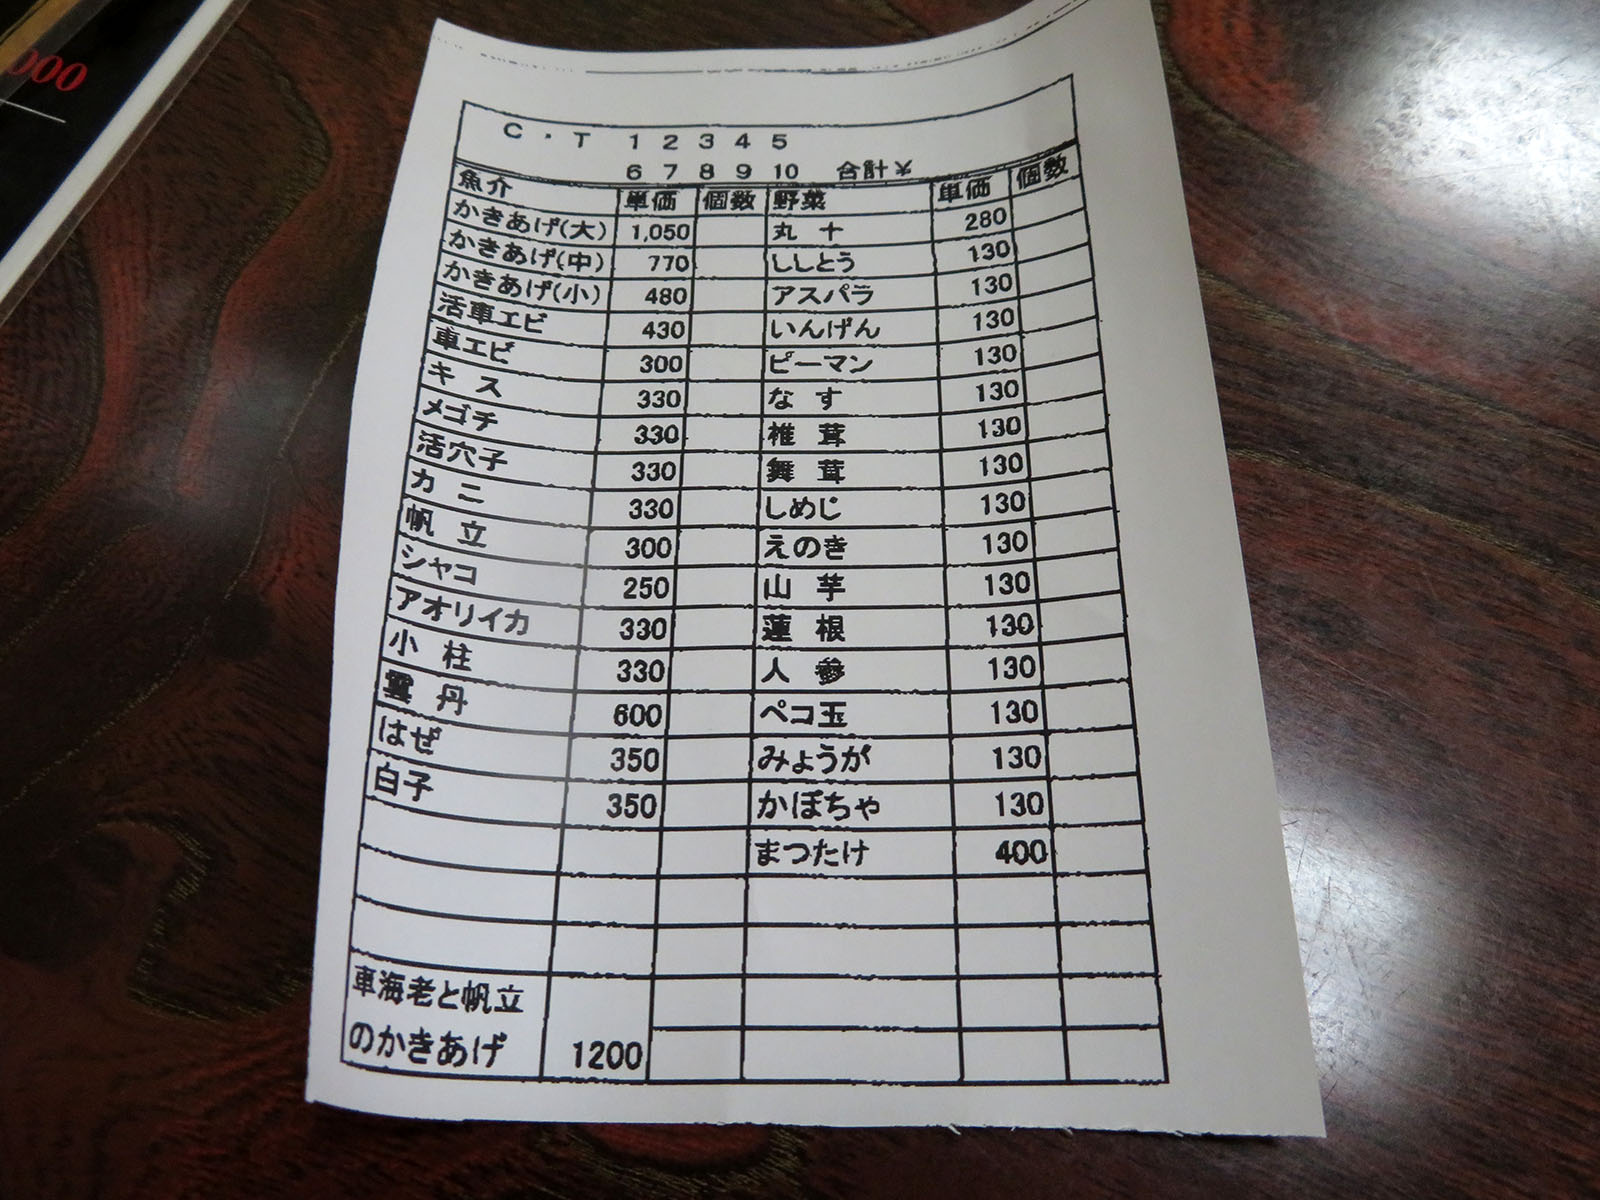 000
C・T 1 2 3 4 5
6 7 8 9 10 合計¥
魚介 単価 個数 野菜 単価 個数
かきあげ(大) 1,050 丸十 280
かきあげ(中) 770 ししとう 130
かきあげ(小) 480 アスパラ 130
活車エビ 430 いんげん 130
車エビ 300 ピーマン 130
キス 330 なす 130
メゴチ 330 椎茸 130
活穴子 330 舞茸 130
カニ 330 しめじ 130
帆立 300 えのき 130
シャコ 250 山芋 130
アオリイカ 330 蓮根 130
小柱 330 人参 130
雲丹 600 ペコ玉 130
はぜ 350 みょうが 130
白子 350 かぼちゃ 130
まつたけ 400
車海老と帆立
のかきあげ 1200